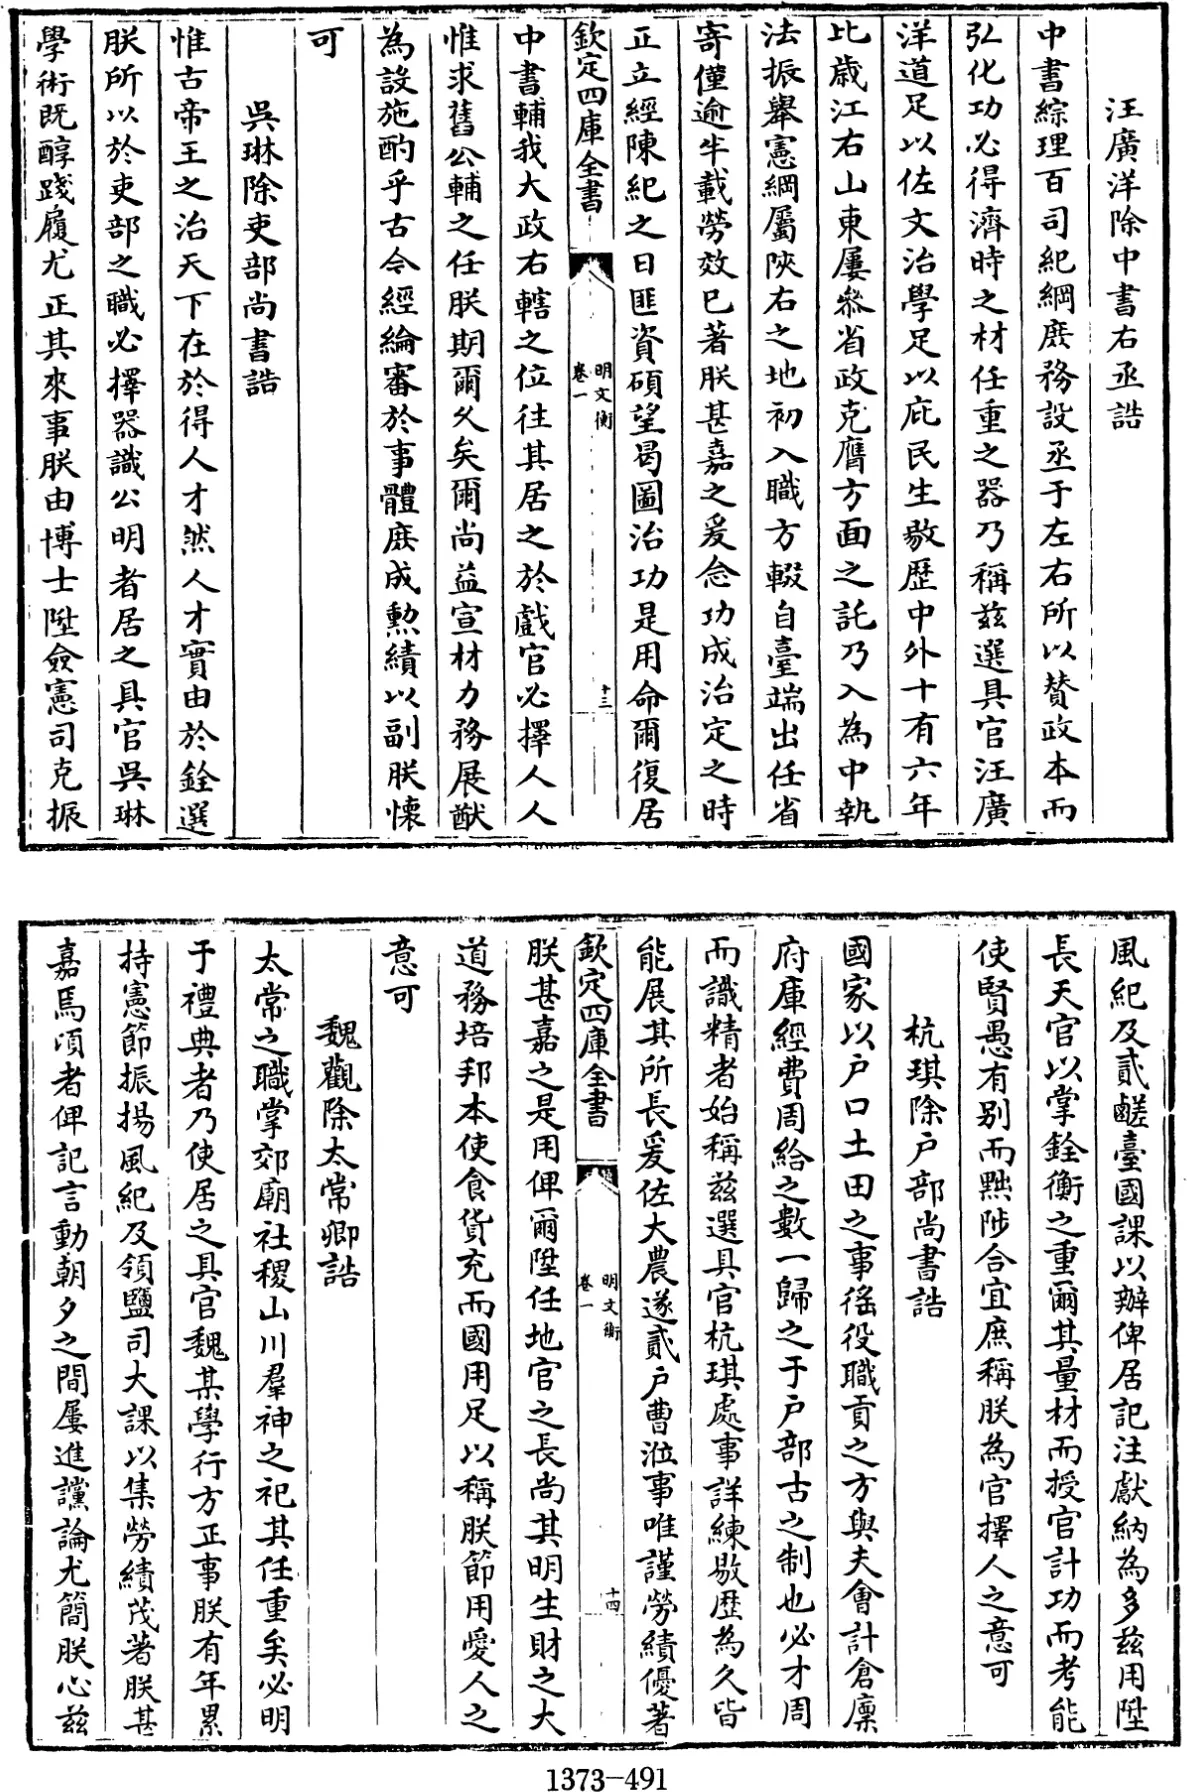 汪廣洋除中書右丞誥
中書綜理百司紀綱庶務設丞于左右所以賛政本而
弘化功必得濟時之材任重之器乃稱兹選具官汪廣
洋道足以佐文治學足以庇民生敭歷中外十有六年
比歲江右山東屢叅省政克膺方面之託乃入為中執
法振舉憲綱屬陜右之地初入職方輟自臺端出任省
寄僅逾半載勞效已著朕甚嘉之爰念功成治定之時
正立經陳紀之日匪資碩望曷圖治功是用命爾復居
欽定四庫全書
明文衡
卷一
十三
中書輔我大政右轄之位往其居之於戲官必擇人人
惟求舊公輔之任朕期爾久矣爾尚益宣材力務展猷
為設施酌乎古今經綸審於事體庶成勲績以副朕懷
可
吳琳除吏部尚書誥
惟古帝王之治天下在於得人才然人才實由於銓選
朕所以於吏部之職必擇器識公明者居之具官吳琳
學術既醇踐履尤正其來事朕由博士陞僉憲司克振
風紀及貳鹺臺國課以辦俾居記注獻納為多兹用陞
長天官以掌銓衡之重爾其量材而授官計功而考能
使賢愚有别而黜陟合宜庶稱朕為官擇人之意可
杭琪除户部尚書誥
國家以户口土田之事徭役職貢之方與夫會計倉廩
府庫經費周給之數一歸之于户部古之制也必才周
而識精者始稱兹選具官杭琪處事詳練敭歷為久皆
能展其所長爰佐大農遂貳户曹涖事唯謹勞績優著
欽定四庫全書
明文衡
卷一
十四
朕甚嘉之是用俾爾陞任地官之長尚其明生財之大
道務培邦本使食貨充而國用足以稱朕節用愛人之
意可
魏觀除太常卿誥
太常之職掌郊廟社稷山川羣神之祀其任重矣必明
于禮典者乃使居之具官魏某學行方正事朕有年累
持憲節振揚風紀及領鹽司大課以集勞績茂著朕甚
嘉焉頃者俾記言動朝夕之間屢進讜論尤簡朕心兹
1373-491